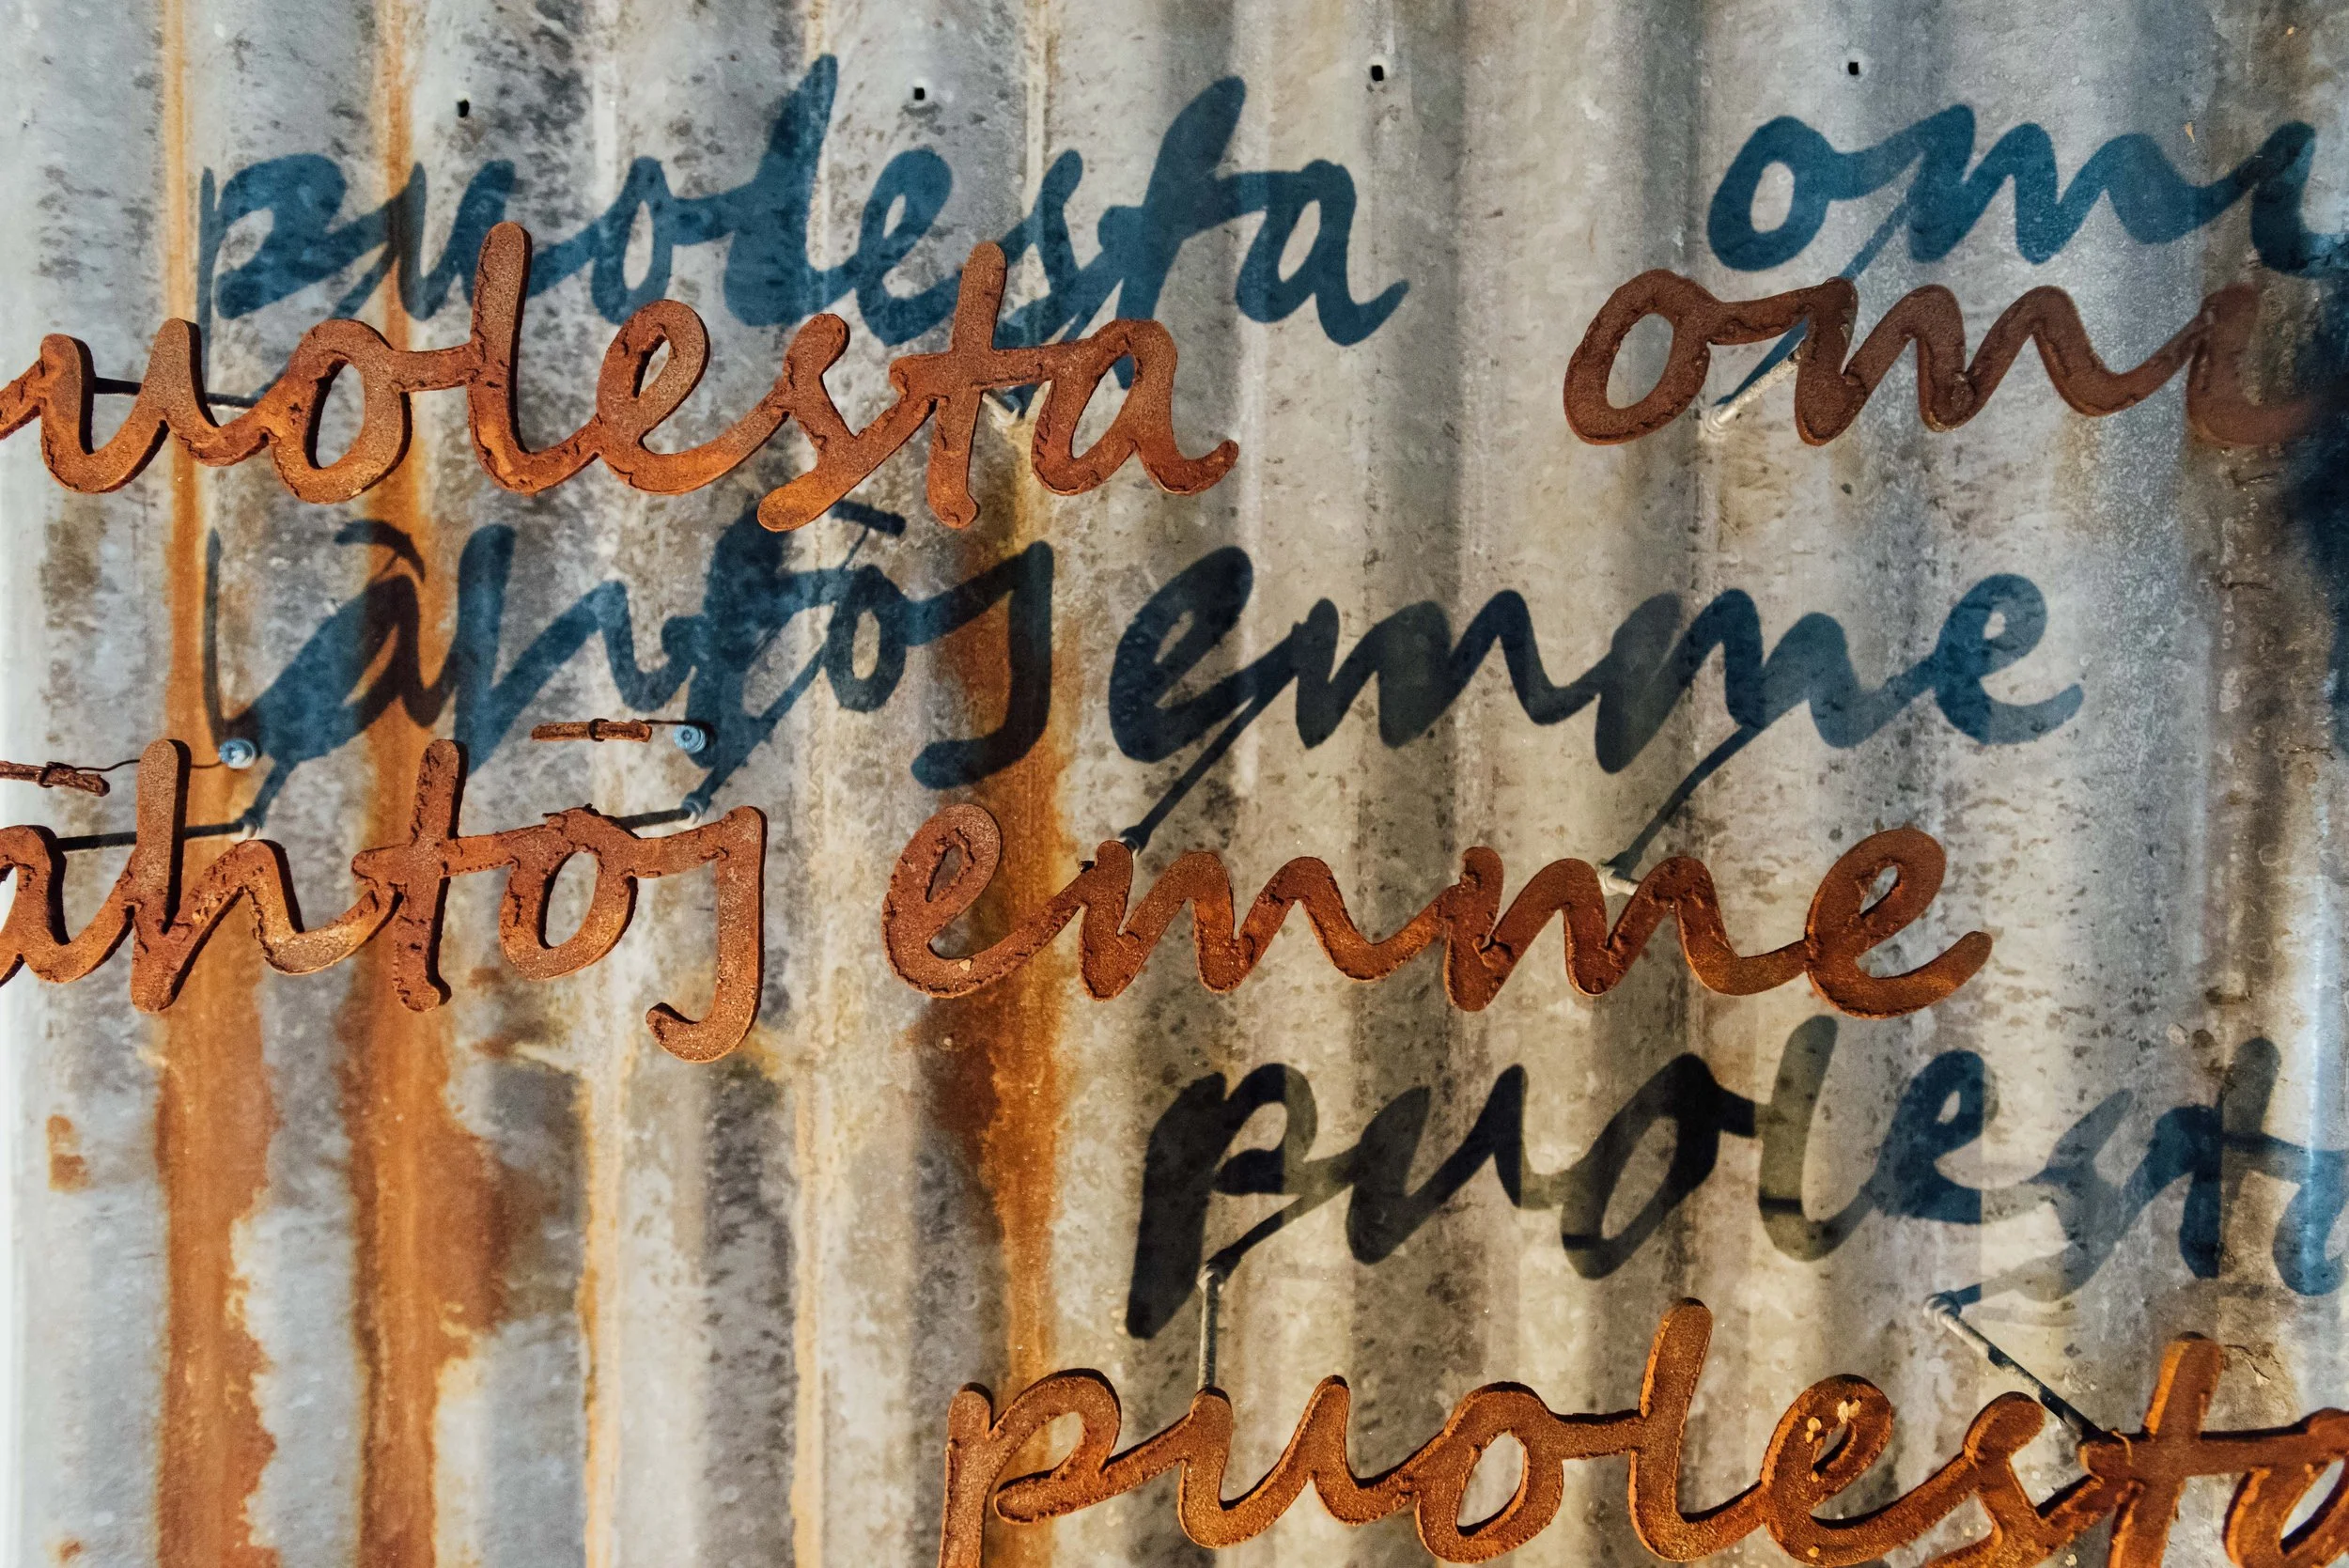 puolesta om
ähtöj emme
puolesta